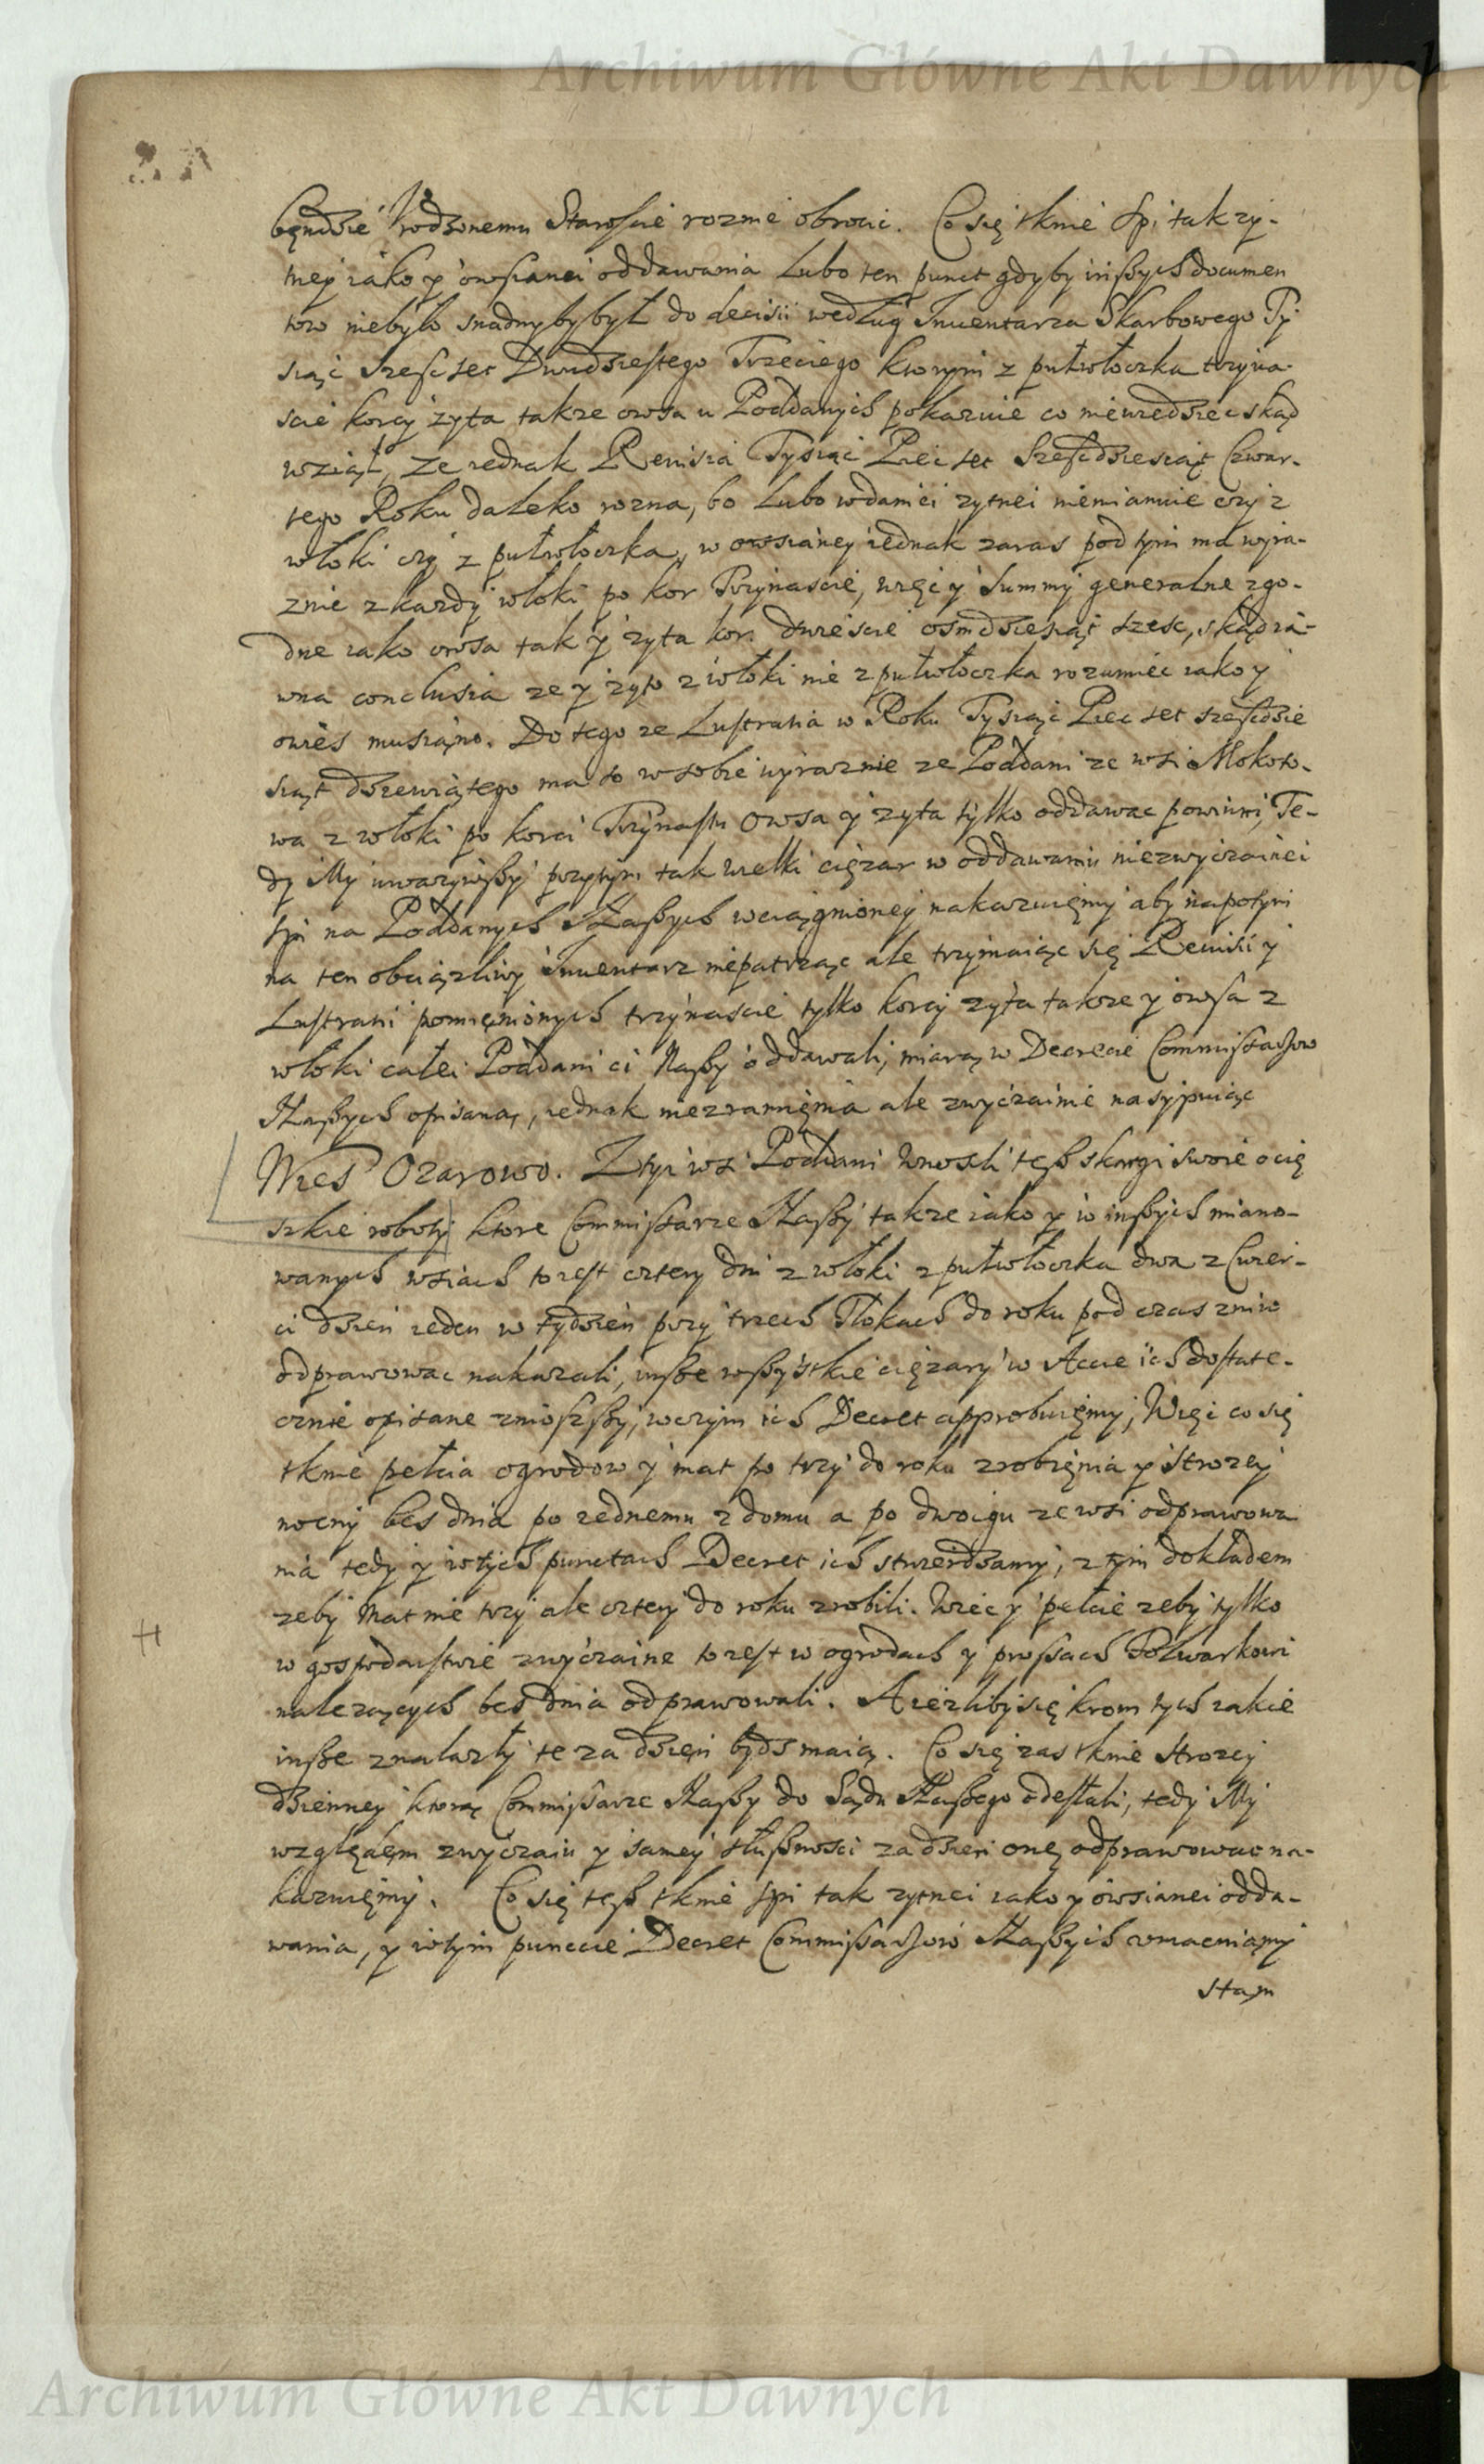 Archiwum Główne Akt Dawnych
będzie Urodzonemu Staroscie rozmie obrocic. Co się tknie Spi tak zy-
tney iako y owsianei oddawania Lubo ten punct gdyby inszych documen
tow niebyło snadnyby był do decisii według Inuentarza Skarbowego Ty
siąc Szescset Dwudziestego Trzeciego ktorym z pułwłoczka trzyna-
scie korcy zyta takze owsa u Poddanych pokazuie co niewiedziec skąd
wziął, Ze iednak Reuisia Tysiąc Piecset Szescdziesiąt Czwar-
tego Roku daleko rozna, bo Lubo wdanici zytnei niemianuie czy z
włoki czy z pułwłoczka, w owsianey iednak zaras pod tym ma wyra-
znie z kazdy włoki po kor Trzynascie, więc y Summy generalne zgo-
dne iako owsa tak y zyta kor. dwiescie osmdziesiąt szesc, skąd ia-
wna conclusia ze y zyto z włoki nie z pułwłoczka rozumiec iako y
owies musiano. Do tego ze Lustratia w Roku Tysiąc Piecset szescdzie
siąt dziewiątego ma to w sobie wyraznie ze Poddani ze wsi Mokoto-
wa z włoki po korci Trzynastu Owsa y zyta tylko oddawac powinni, Te-
dy My uwazywszy przytym tak wielki cięzar w oddawaniu niezwyczainei
Spi na Poddanych Naszych wciągnioney nakazuięmy aby napotym
na ten obciązliwy Inuentarz niepatrząc ale trzymaiąc się Reuisi y
Lustrati pomięnionych trzynascie tylko korcy zyta takze y owsa z
włoki całei Poddani ci Naszy oddawali, miarą w Decrecie Commissarzow
Naszych opisaną, iednak niezramięnia ale zwyczainie nasypuiąc
Wies Ozarowo. Z tyi wsi Poddani wnosli tesz skargi swoie o cię
szkie roboty ktore Commissarze Naszy takze iako y w inszych miano-
wanych wsiach to iest cztery dni z włoki z pułwłoczka dwa z Cwier-
ci dzien ieden w tydzien przy trzech Tłokach do roku pod czas zniw
odprawowac nakazali, insze wszystkie cięzary w Accie ich dostate-
cznie opisane zniosszy, w czym ich Decret approbuięmy, Więc co się
tknie pełcia ogrodow y mat po trzy do roku zrobięnia y Strozey
nocny bes dnia po iednemu z domu a po dwoigu ze wsi odprawowa
nia tedy y w tych punctach Decret ich stwierdzamy, z tym dokładem
zeby Mat nie trzy ale cztery do roku zrobili. Wiec y pełcie zeby tylko
w gospodarstwie zwyczaine to iest w ogrodach y prossach Folwarkowi
nalezących bes dnia odprawowali. A iezliby się krom tych iakie
insze znalazły te za dzięn bydz maią. Co się zas tknie Strozey
dzienney ktorą Commissarze Naszy do Sądu Naszego odesłali, tedy My
względem zwyczaiu y samey słusznosci za dzien onę odprawowac na-
kazuięmy. Co się tesz tknie Spi tak zytnei iako y owsianei odda-
wania, y w tym puncie Decret Commissarzow Naszych wmacniamy
stam
Archiwum Główne Akt Dawnych